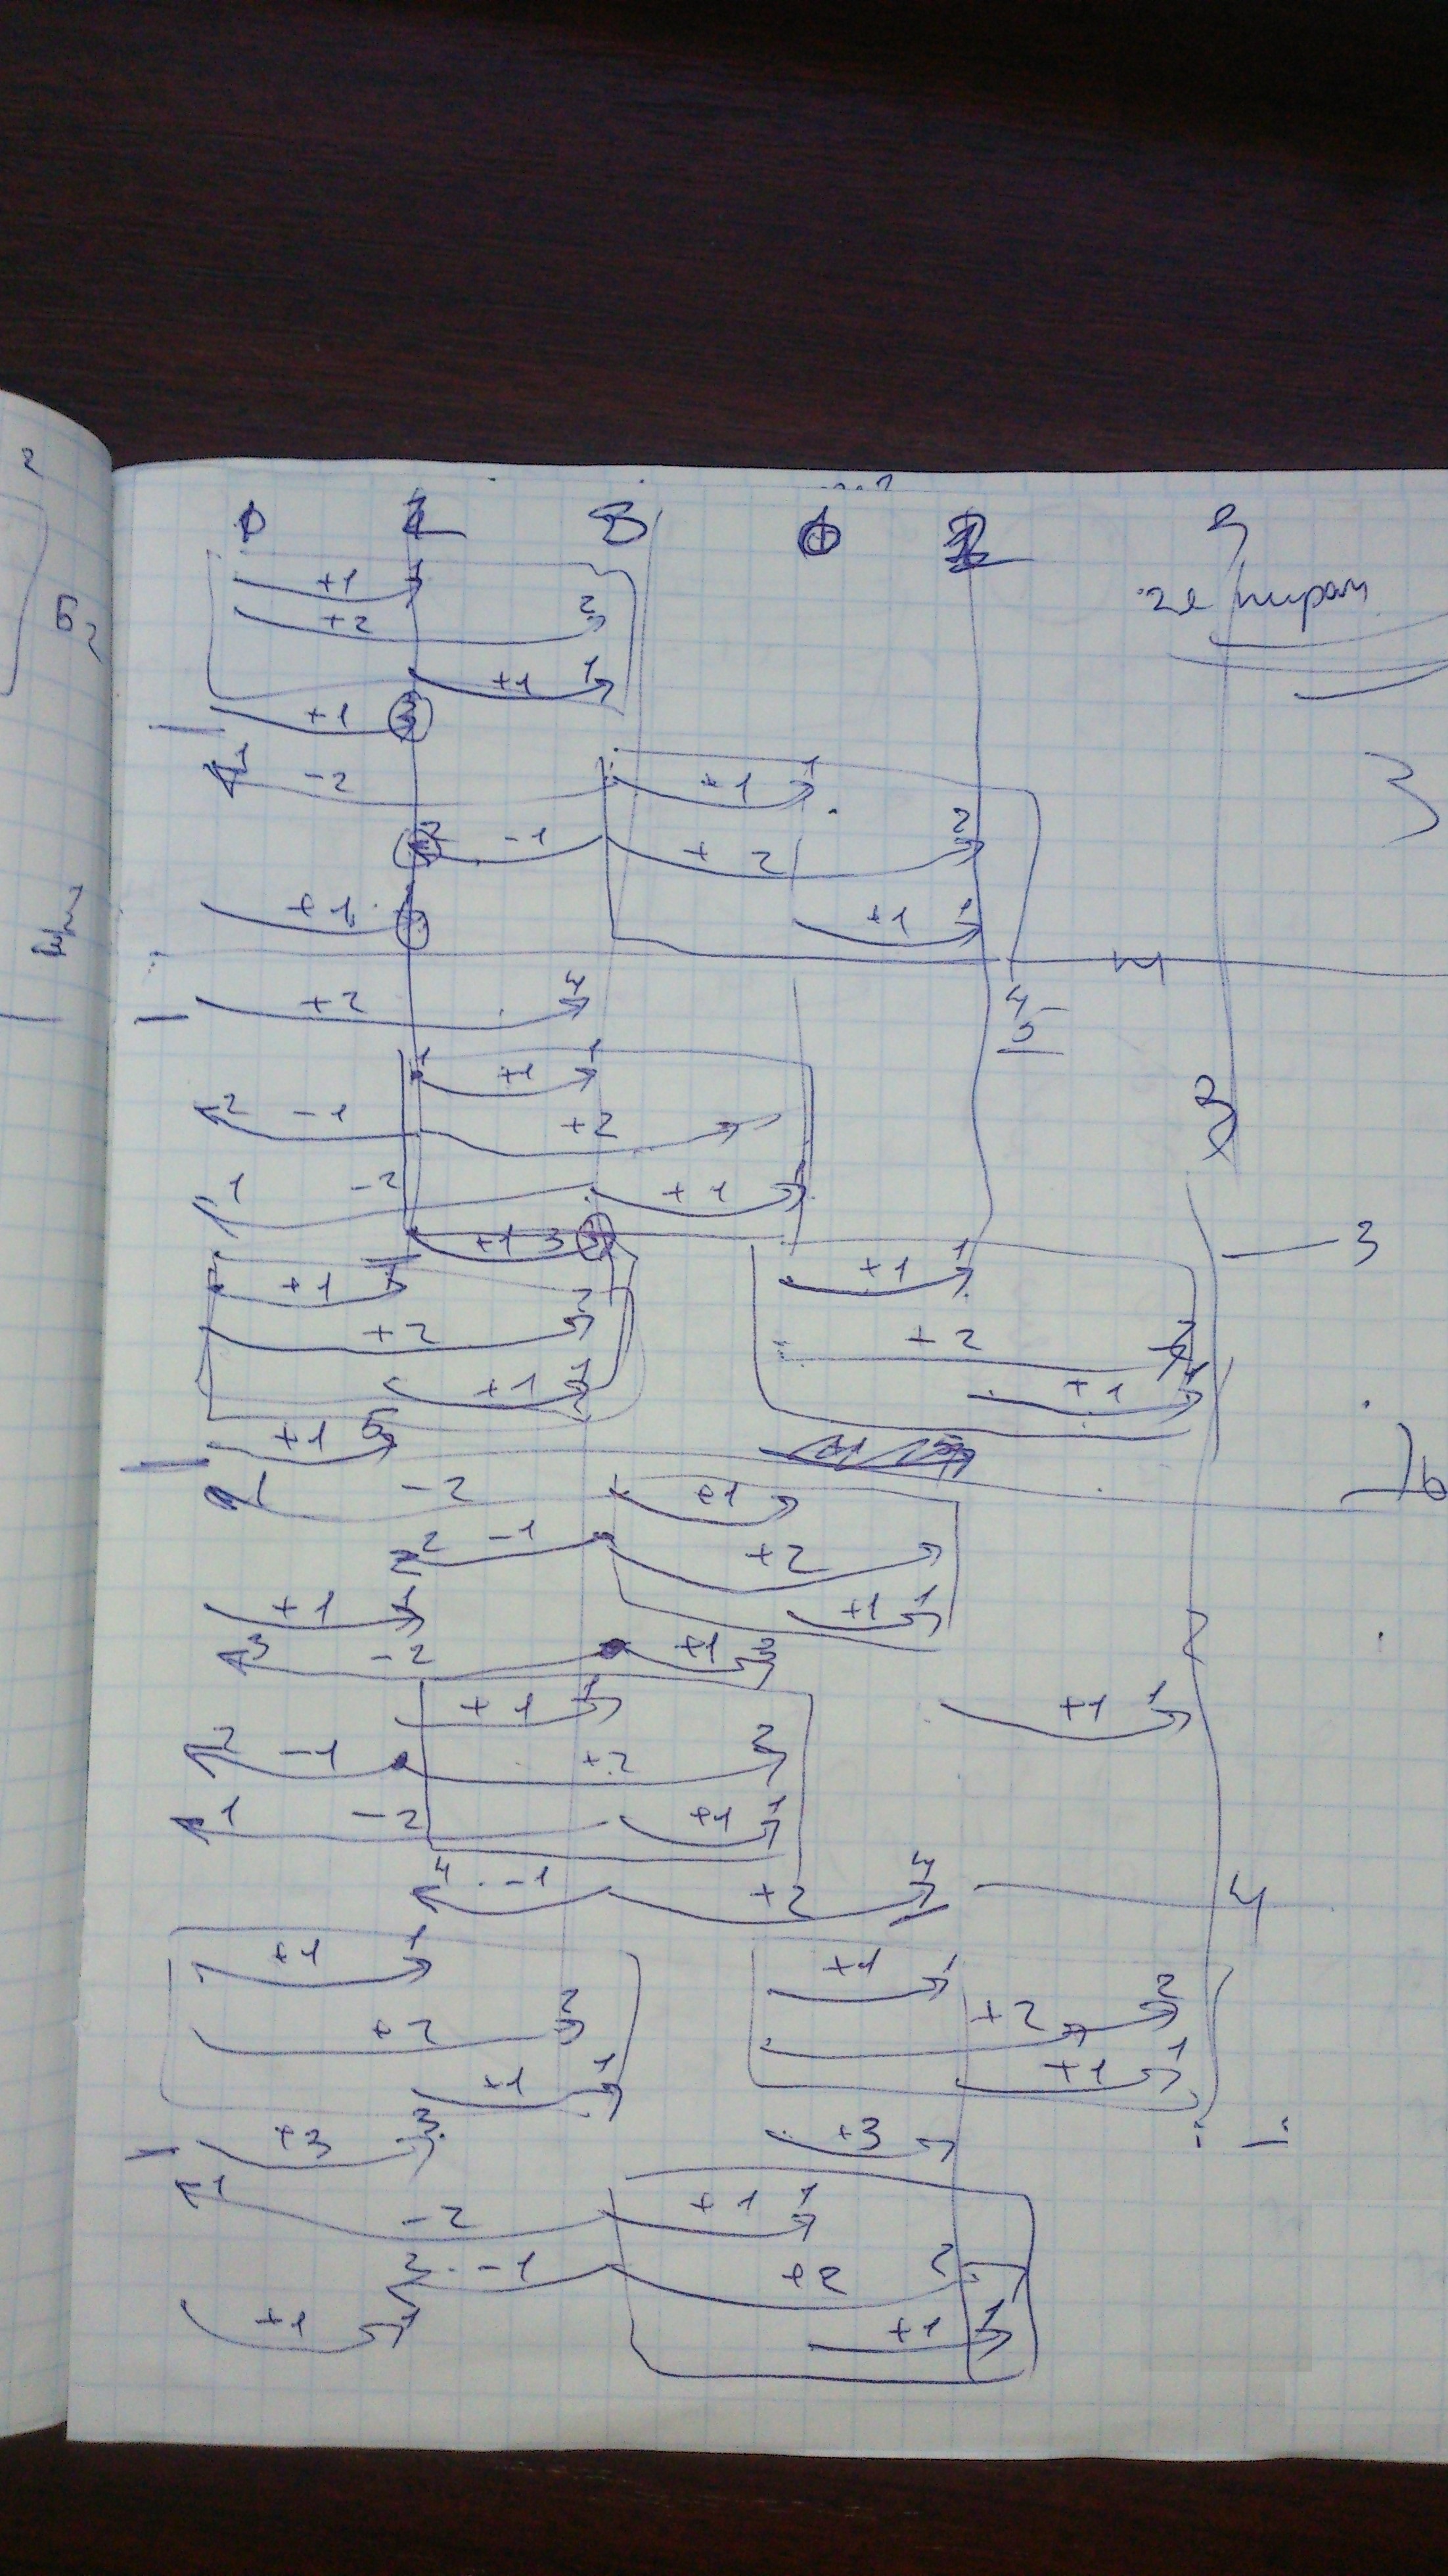 2
Б2
+1 1
+2 2
+1 1
+1 3
1 -2 +1 1
2 -1 + 2 2
+1 +1 1
+2 4
4
5
1 +1 1
2 -1 +2
1 -2 +1 1
+1 3
3
+1 1 +1 1
+2 2 + 2 2
+1 1 +1 1
+1 5
1 -2 +1
2 -1 +2
+1 1 +1 1
3 -2 +1 3
+1 1 +1 1
2 -1 +2 2
1 -2 +1 1
4 -1 +2 4 4
+1 1 +1 1
+2 2 +2 2
+1 1 +1 1
+3 3 +3
1 -2 +1 1
2 -1 +2 2
+1 1 +1 1